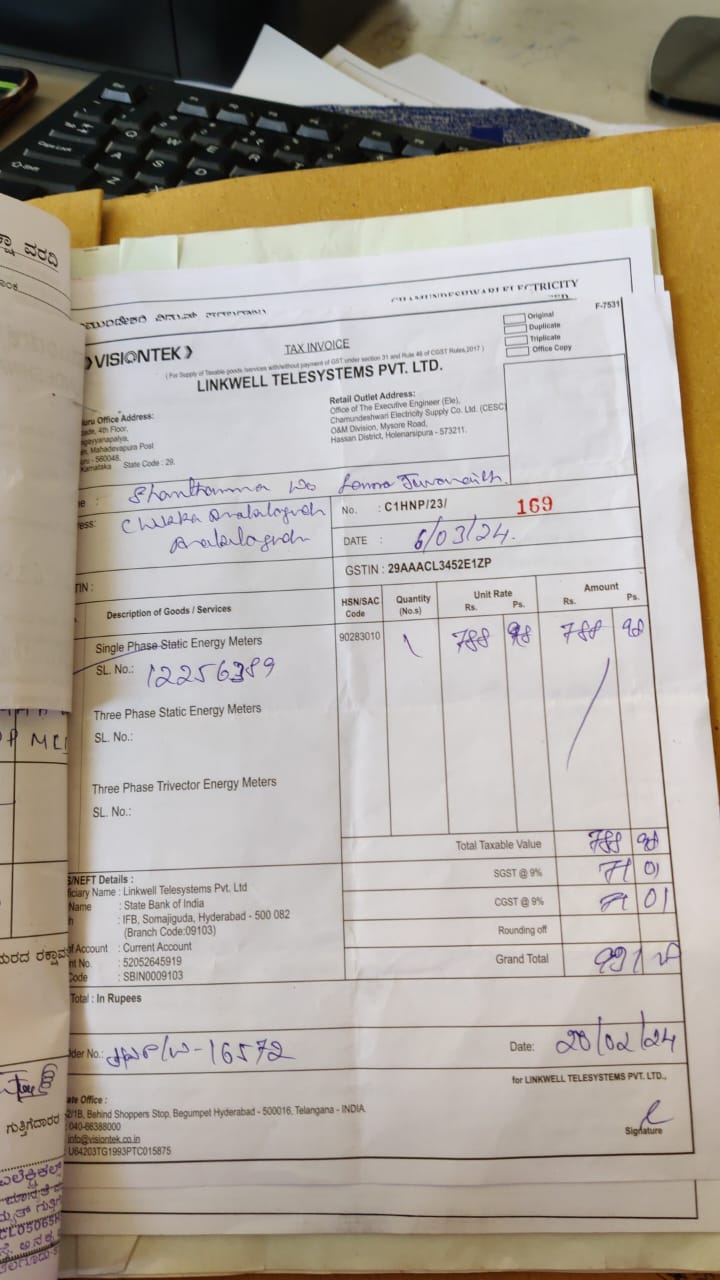 CHAMUNDESHWARI ELECTRICITY
F-7531
VISIONTEK
TAX INVOICE
Original
Duplicate
Triplicate
Office Copy
( For Supply of Taxable goods /services with/without payment of GST under section 31 and Rule 46 of CGST Rules,2017 )
LINKWELL TELESYSTEMS PVT. LTD.
uru Office Address:
ade, 4th Floor,
gayyanapalya,
n, Mahadevapura Post
uru - 560048,
Karnataka State Code : 29.
Retail Outlet Address:
Office of The Executive Engineer (Ele),
Chamundeshwari Electricity Supply Co. Ltd. (CESC)
O&M Division, Mysore Road,
Hassan District, Holenarsipura - 573211.
e : Shanthamma W/o
ress: Chikka
No. : C1HNP/23/ 169
DATE : 6/03/24.
TIN :
GSTIN : 29AAACL3452E1ZP
Description of Goods / Services
HSN/SAC Code
Quantity (No.s)
Unit Rate
Rs. Ps.
Amount
Rs. Ps.
Single Phase Static Energy Meters 90283010 1 788 98 788 98
SL. No.: 12256389
Three Phase Static Energy Meters
SL. No.:
Three Phase Trivector Energy Meters
SL. No.:
Total Taxable Value 788 98
SGST @ 9% 71 01
CGST @ 9% 71 01
Rounding off
Grand Total 931
S/NEFT Details :
ficiary Name : Linkwell Telesystems Pvt. Ltd
Name : State Bank of India
h : IFB, Somajiguda, Hyderabad - 500 082
(Branch Code:09103)
of Account : Current Account
nt No. : 52052645919
Code : SBIN0009103
Total : In Rupees
der No.: HNP/W-16572
Date: 20/02/24
for LINKWELL TELESYSTEMS PVT. LTD.,
Signature
ate Office :
2/1B, Behind Shoppers Stop, Begumpet Hyderabad - 500016, Telangana - INDIA.
: 040-66388000
info@visiontek.co.in
U64203TG1993PTC015875
ಗುತ್ತಿಗೆದಾರರ